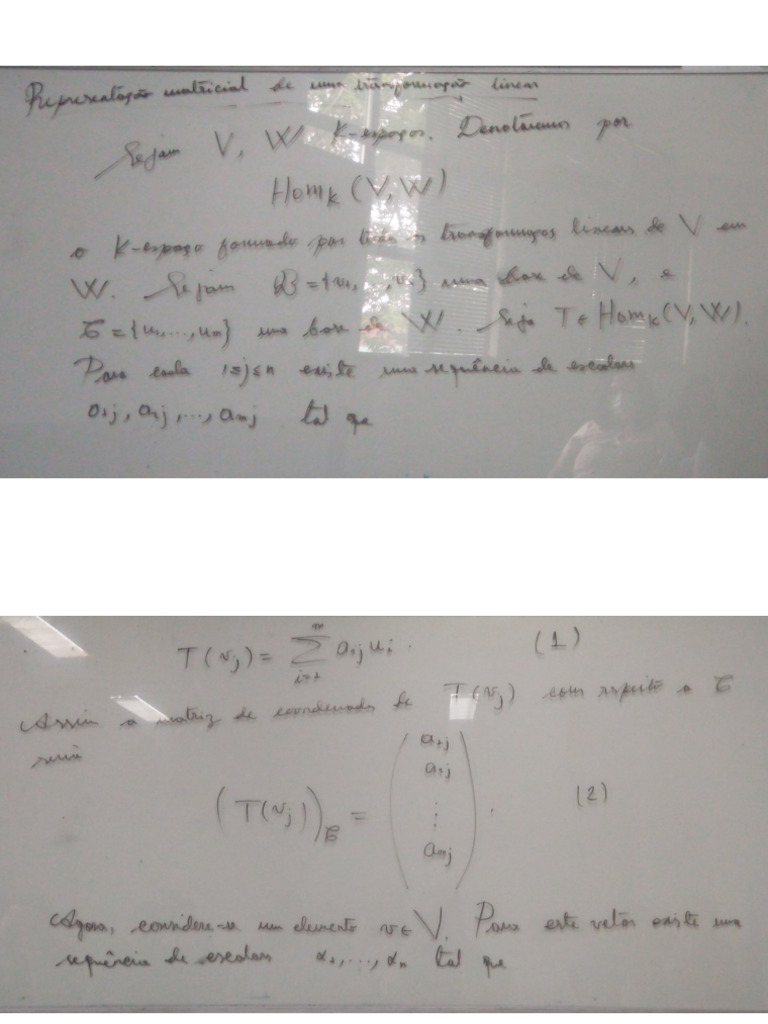 Representação matricial de uma transformação linear
Sejam V, W K-espaços. Denotaremos por
Hom_K (V, W)
o K-espaço formado por todas as transformações lineares de V em
W. Sejam B = {v₁, ..., vₙ} uma base de V, e
C = {u₁, ..., uₘ} uma base de W. Seja T ∈ Hom_K (V, W).
Para cada 1 ≤ j ≤ n existe uma sequência de escalares
a₁j, a₂j, ..., aₘj tal que
T(vⱼ) = ∑_{i=1}^{m} aᵢⱼ uᵢ. (1)
Assim a matriz de coordenadas de T(vⱼ) com respeito a C
será
(T(vⱼ))_C = ( a₁j
a₂j
⋮
aₘj ). (2)
Agora, considere-se um elemento v ∈ V. Para este vetor existe uma
sequência de escalares α₁, ..., αₙ tal que